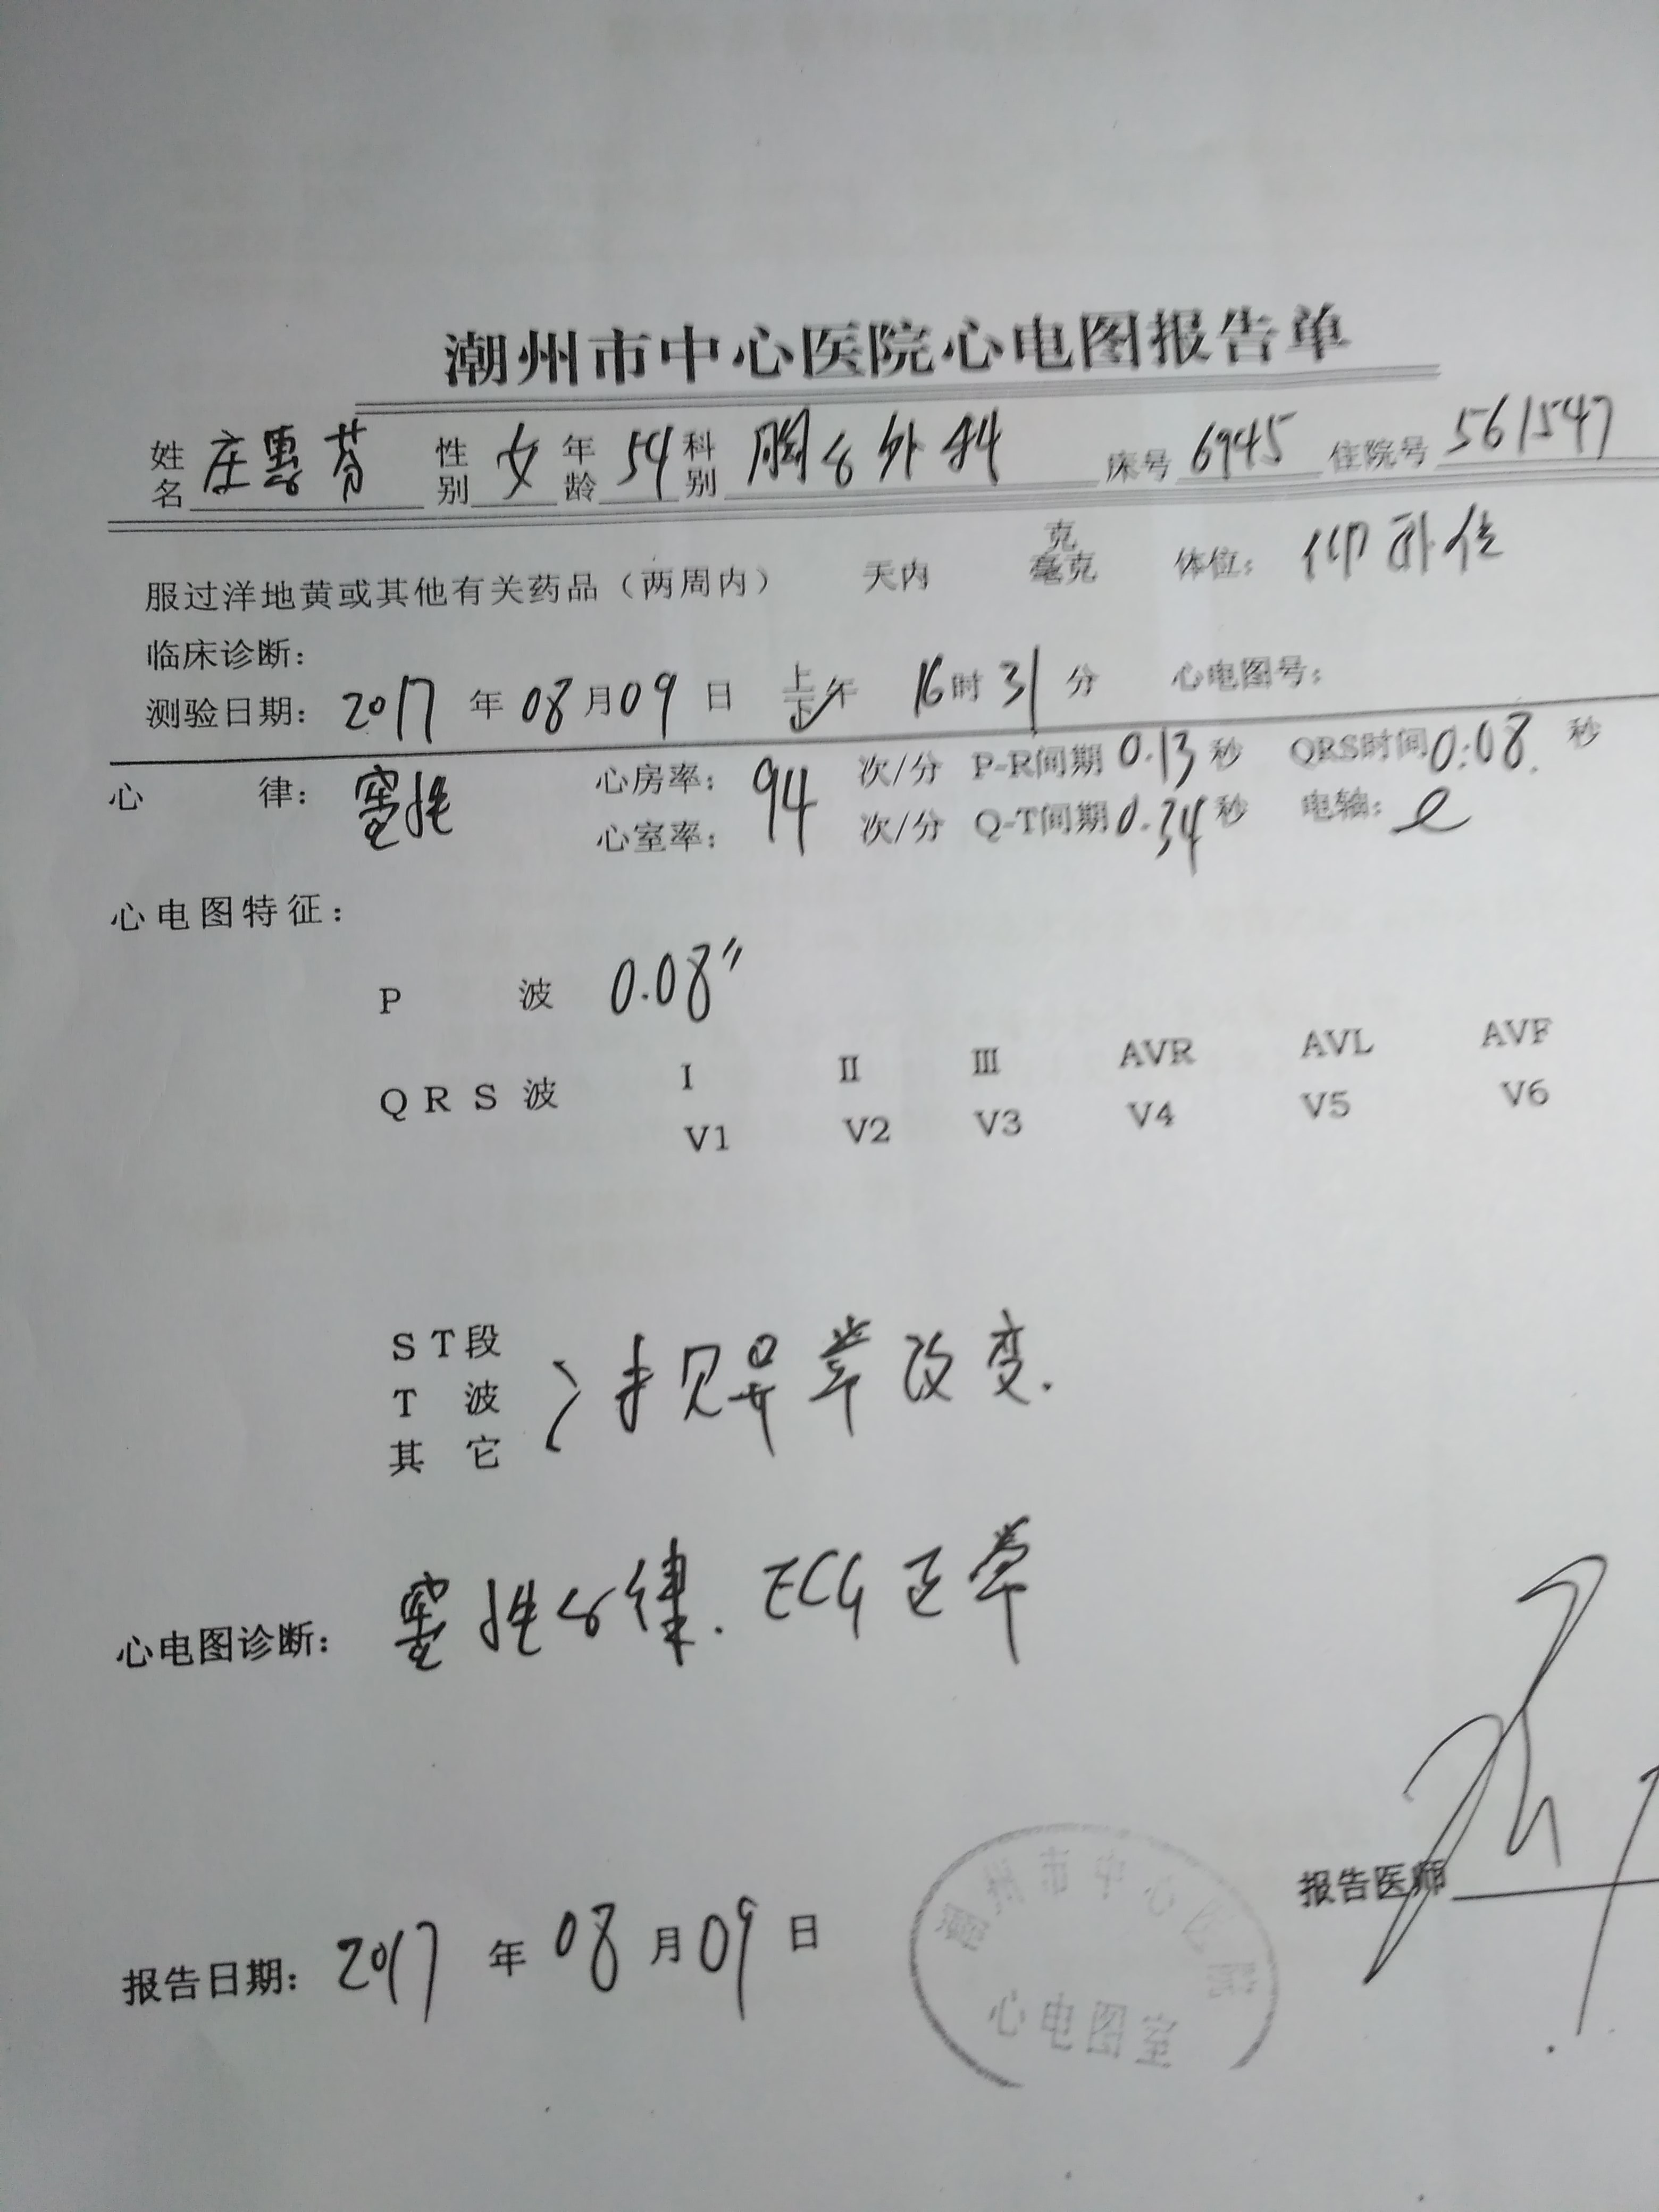 潮州市中心医院心电图报告单
姓名 庄惠芬 性别 女 年龄 54 科别 胸心外科 床号 6945 住院号 561547
服过洋地黄或其他有关药品（两周内） 天内 克 毫克 体位： 仰卧位
临床诊断：
测验日期： 2017 年 08 月 09 日 上 下 午 16 时 31 分 心电图号：
心 律： 窦性 心房率： 94 次/分 P-R间期 0.13 秒 QRS时间 0.08 秒
心室率： 次/分 Q-T间期 0.34 秒 电轴：
心电图特征：
P 波 0.08″
QRS波 I II III AVR AVL AVF
V1 V2 V3 V4 V5 V6
ST段
T 波 未见异常改变.
其 它
心电图诊断： 窦性心律. ECG正常
报告医师
报告日期： 2017 年 08 月 09 日
潮州市中心医院
心电图室